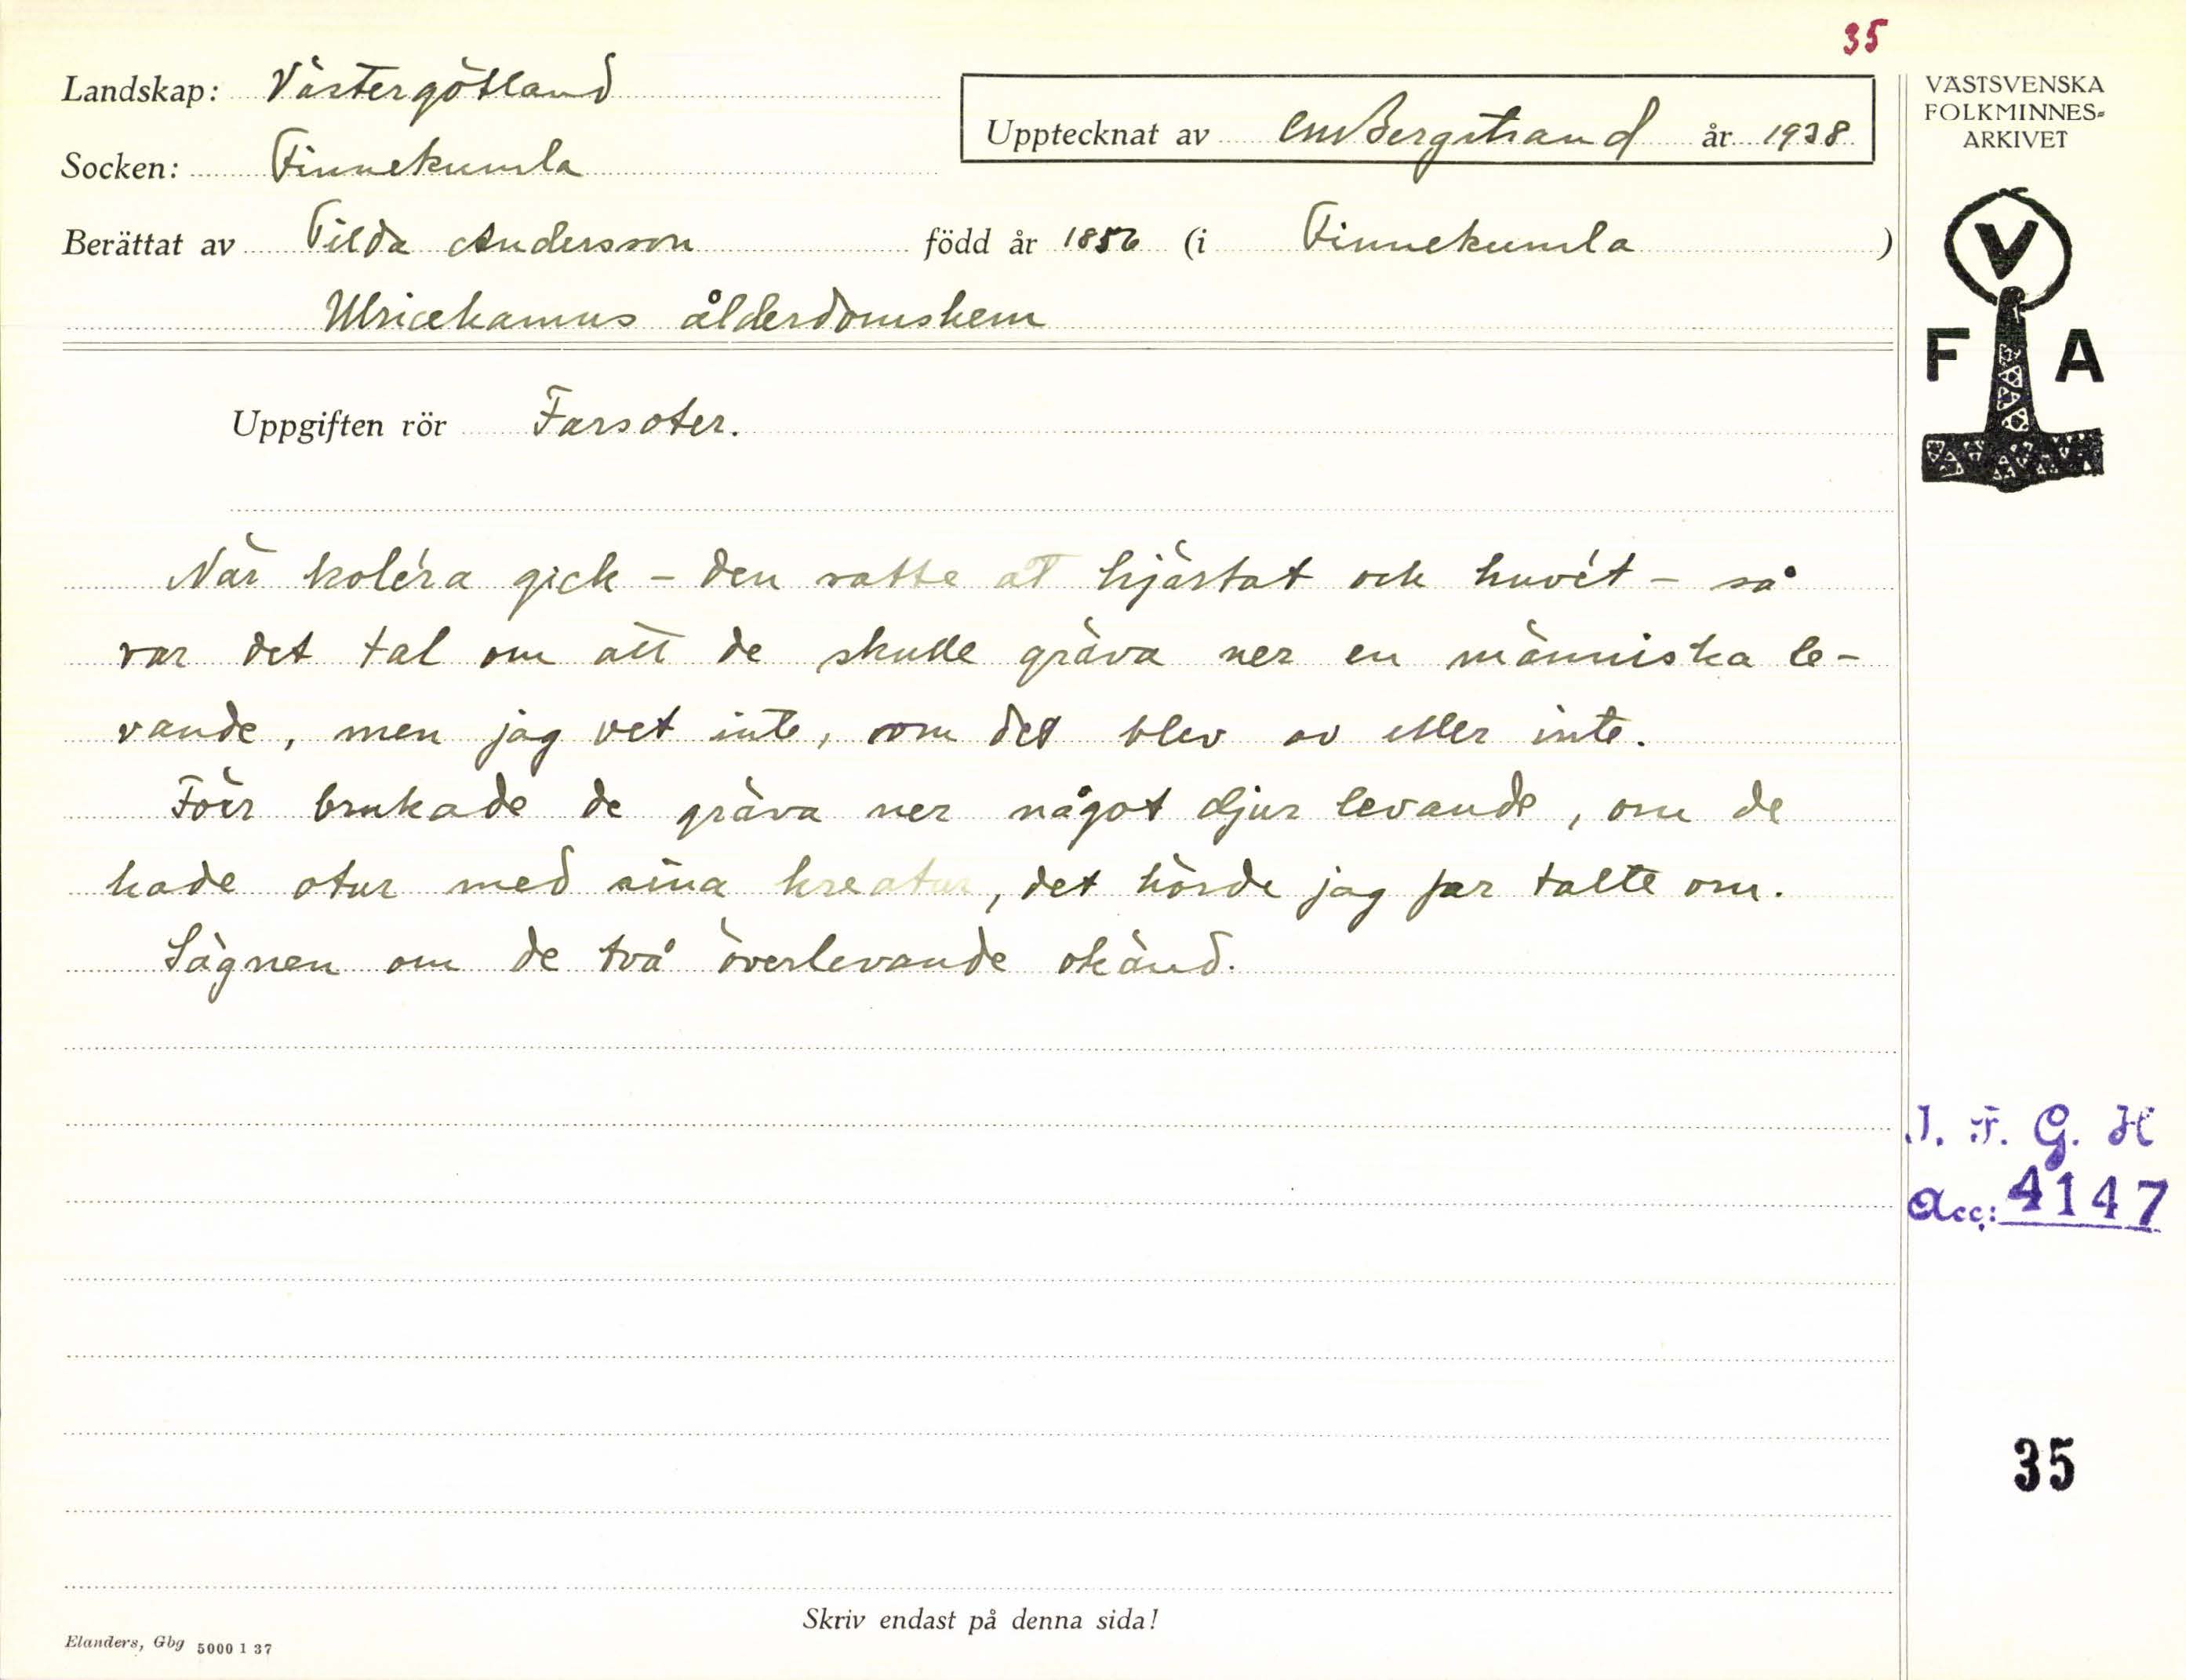 35
Landskap: Västergötland
Socken: Finnekumla
Upptecknat av CM Bergstrand år 1938
Berättat av Tilda Andersson född år 1856 (i Finnekumla)
Ulricehamns ålderdomshem
Uppgiften rör Farsoter.
När koléra gick - den satte åt hjärtat och huvét - så
var det tal om att de skulle gräva ner en människa le-
vande, men jag vet inte, om det blev av eller inte.
Förr brukade de gräva ner något djur levande, om de
hade otur med sina kreatur, det hörde jag far talte om.
Sägnen om de två överlevande okänd.
Skriv endast på denna sida!
Elanders, Gbg 5000 1 37
VÄSTSVENSKA
FOLKMINNES=
ARKIVET
V
F A
I. F. G. H
Acc: 4147
35